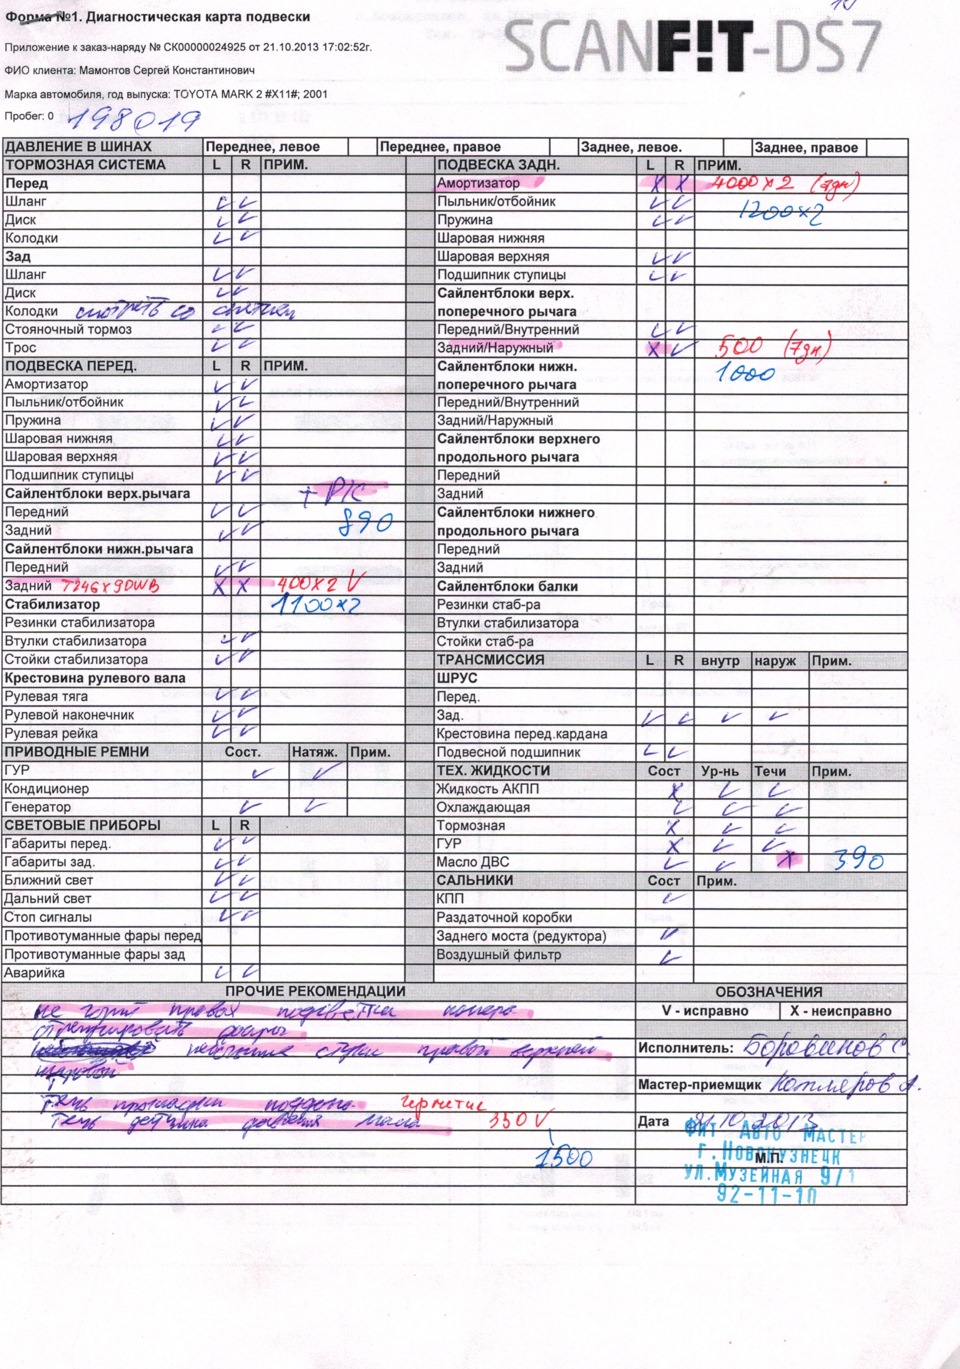 Форма №1. Диагностическая карта подвески
SCANF!T-DS7
Приложение к заказ-наряду № СК00000024925 от 21.10.2013 17:02:52г.
ФИО клиента: Мамонтов Сергей Константинович
Марка автомобиля, год выпуска: TOYOTA MARK 2 #X11#; 2001
Пробег: 0 198019
ДАВЛЕНИЕ В ШИНАХ Переднее, левое Переднее, правое Заднее, левое. Заднее, правое
ТОРМОЗНАЯ СИСТЕМА L R ПРИМ.
Перед
Шланг V V
Диск V V
Колодки V V
Зад
Шланг V V
Диск V V
Колодки смотреть со снятием
Стояночный тормоз V V
Трос V V
ПОДВЕСКА ПЕРЕД. L R ПРИМ.
Амортизатор V V
Пыльник/отбойник V V
Пружина V V
Шаровая нижняя V V
Шаровая верхняя V V
Подшипник ступицы V V
Сайлентблоки верх.рычага + РК
Передний V V 890
Задний V V
Сайлентблоки нижн.рычага
Передний V V
Задний T246x9DWB X X 400x2 V
Стабилизатор 1100x2
Резинки стабилизатора
Втулки стабилизатора V V
Стойки стабилизатора V V
Крестовина рулевого вала
Рулевая тяга V V
Рулевой наконечник V V
Рулевая рейка V V
ПРИВОДНЫЕ РЕМНИ Сост. Натяж. Прим.
ГУР V V
Кондиционер
Генератор V V
СВЕТОВЫЕ ПРИБОРЫ L R
Габариты перед. V V
Габариты зад. V V
Ближний свет V V
Дальний свет V V
Стоп сигналы V V
Противотуманные фары перед
Противотуманные фары зад
Аварийка V V
ПОДВЕСКА ЗАДН. L R ПРИМ.
Амортизатор X X 4000x2 (7дн)
Пыльник/отбойник V V 1200x2
Пружина V V
Шаровая нижняя
Шаровая верхняя V V
Подшипник ступицы V V
Сайлентблоки верх.
поперечного рычага
Передний/Внутренний V V
Задний/Наружный X V 500 (7дн)
Сайлентблоки нижн. 1000
поперечного рычага
Передний/Внутренний
Задний/Наружный
Сайлентблоки верхнего
продольного рычага
Передний
Задний
Сайлентблоки нижнего
продольного рычага
Передний
Задний
Сайлентблоки балки
Резинки стаб-ра
Втулки стабилизатора
Стойки стаб-ра
ТРАНСМИССИЯ L R внутр наруж Прим.
ШРУС
Перед.
Зад. V V V V
Крестовина перед.кардана
Подвесной подшипник V V
ТЕХ. ЖИДКОСТИ Сост Ур-нь Течи Прим.
Жидкость АКПП X V V
Охлаждающая V V V
Тормозная X V V
ГУР X V V
Масло ДВС V V X 390
САЛЬНИКИ Сост Прим.
КПП V
Раздаточной коробки
Заднего моста (редуктора) V
Воздушный фильтр V
ПРОЧИЕ РЕКОМЕНДАЦИИ
не горит правая подсветка номера
отрегулировать фары
небольшие стуки правой верхней
шаровой
Течь прокладки поддона герметик
Течь датчика давления масла 350 V
1500
ОБОЗНАЧЕНИЯ
V - исправно X - неисправно
Исполнитель: Боровиков С.
Мастер-приемщик Котляров А.
Дата 21.10.2013
М.П.
ФИТ АВТО МАСТЕР
г.НОВОКУЗНЕЦК
УЛ.МУЗЕЙНАЯ 9/1
92-11-10